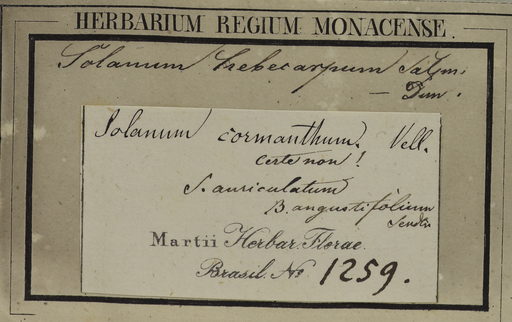 HERBARIUM REGIUM MONACENSE.
Solanum hebecarpum
— Dun.
Solanum cormanthum. Vell.
certe non!
S. auriculatum
B. angustifolium
Sendtn
Martii Herbar. Florae.
Brasil. No 1259.